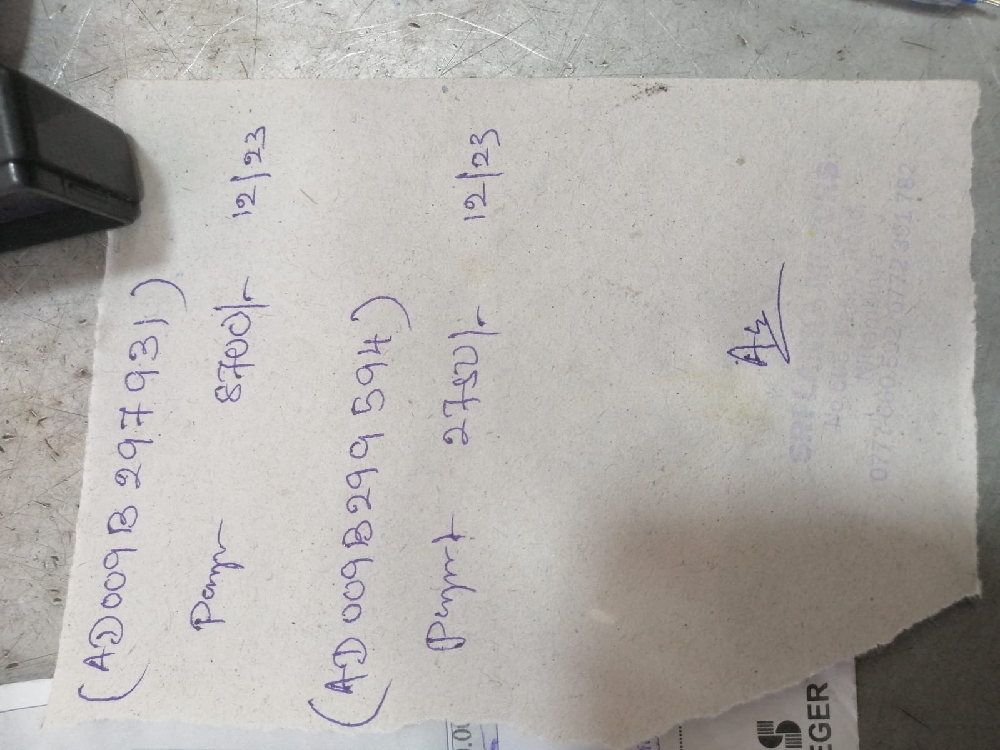 (AD009B297931)
Paym 8700/- 12/23
(AD009B299594)
Paymt 2750/- 12/23
EGER